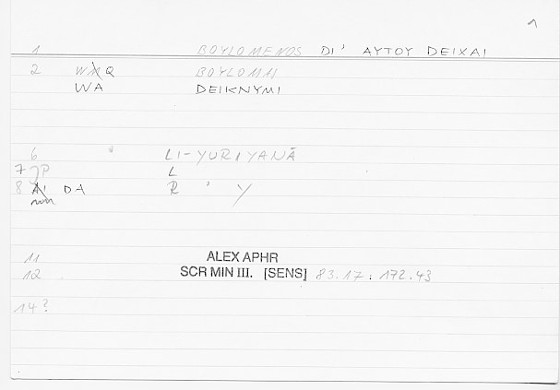 1
1 BOYLOMENOS DI' AYTOY DEIXAI
2 Q BOYLOMAI
WA DEIKNYMI
6 LI-YURIYANĀ
7 JP L
8 DA R ' Y
11 ALEX APHR
12 SCR MIN III. [SENS] 83.17 : 172.43
14?